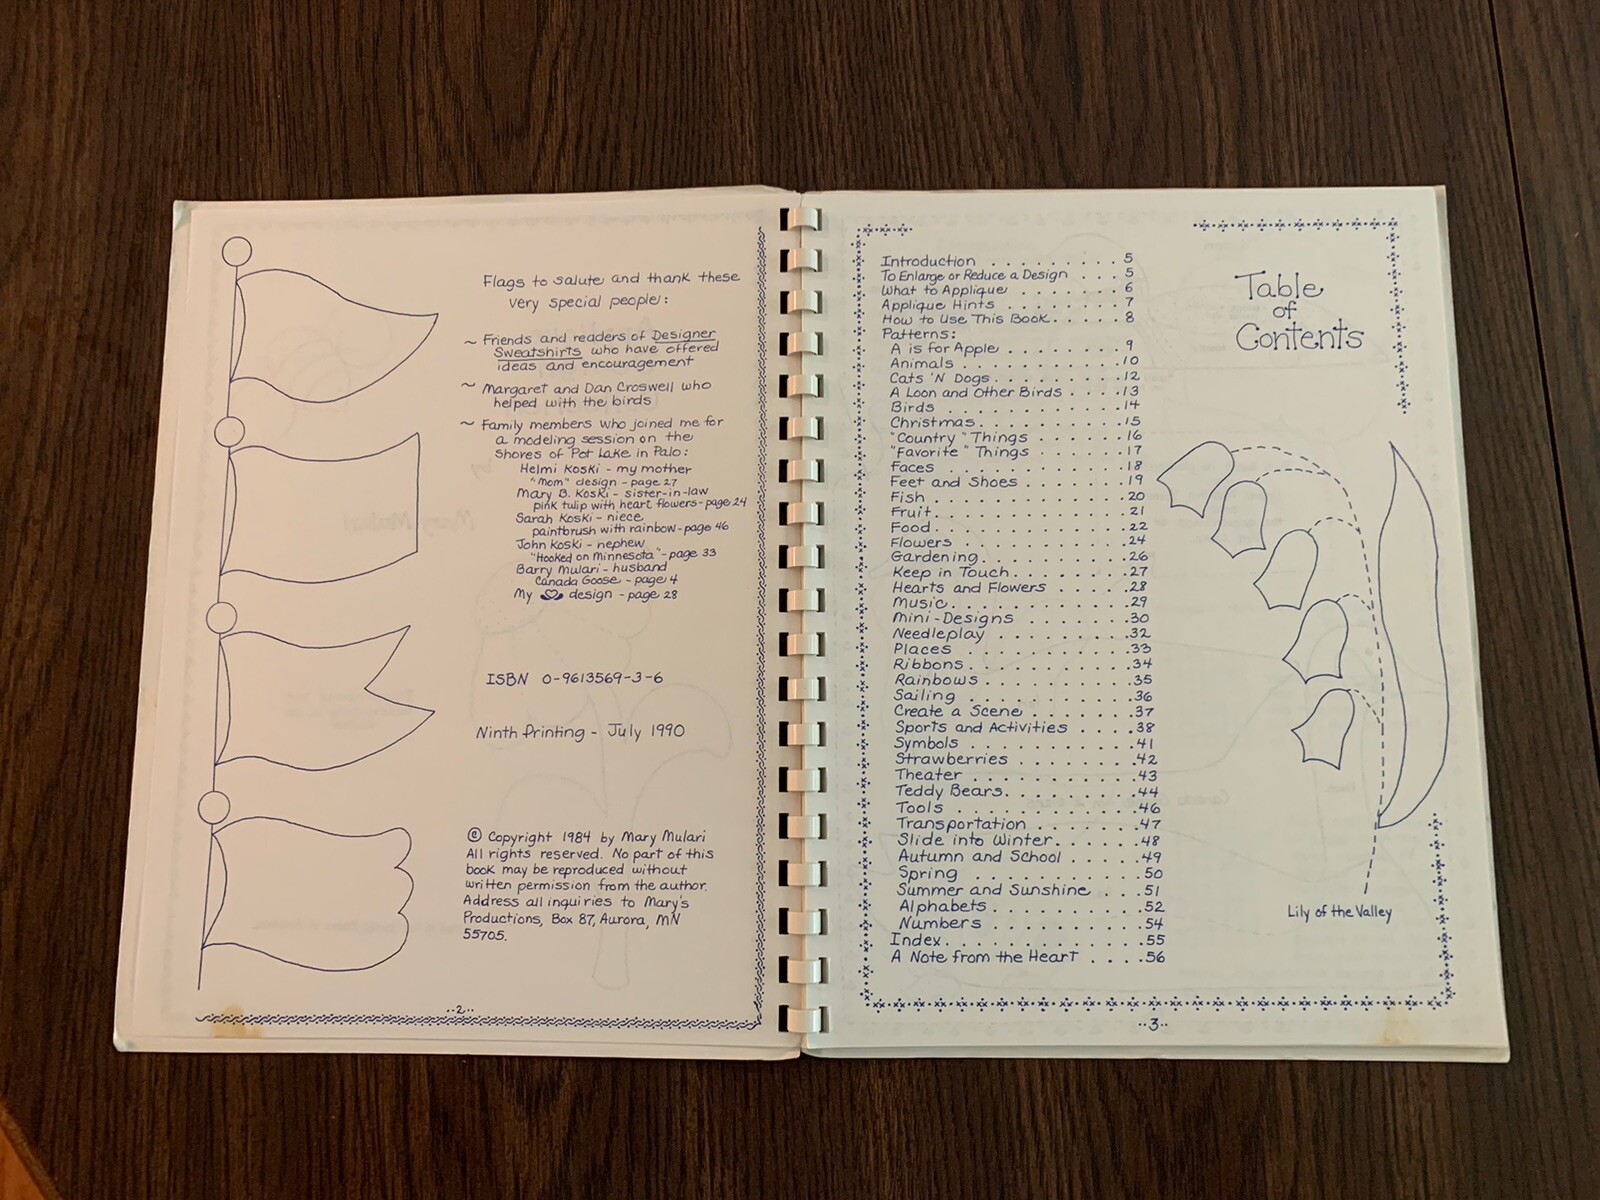 Flags to salute and thank these
very special people:
~ Friends and readers of Designer
Sweatshirts who have offered
ideas and encouragement
~ Margaret and Dan Croswell who
helped with the birds
~ Family members who joined me for
a modeling session on the
shores of Pot Lake in Palo:
Helmi Koski - my mother
"Mom" design - page 27
Mary B. Koski - sister-in-law
pink tulip with heart flowers - page 24
Sarah Koski - niece
paintbrush with rainbow - page 46
John Koski - nephew
"Hooked on Minnesota" - page 33
Barry Mulari - husband
Canada Goose - page 4
My design - page 28
ISBN 0-9613569-3-6
Ninth Printing - July 1990
© Copyright 1984 by Mary Mulari
All rights reserved. No part of this
book may be reproduced without
written permission from the author.
Address all inquiries to Mary's
Productions, Box 87, Aurora, MN
55705.
..2..
Table
of
Contents
Introduction . . . . . . . . . 5
To Enlarge or Reduce a Design . . . 5
What to Applique . . . . . . . 6
Applique Hints . . . . . . . . 7
How to Use This Book . . . . . 8
Patterns:
A is for Apple . . . . . . . . 9
Animals . . . . . . . . . . . 10
Cats 'N Dogs . . . . . . . . . 12
A Loon and Other Birds . . . . 13
Birds . . . . . . . . . . . . 14
Christmas . . . . . . . . . . 15
"Country" Things . . . . . . 16
"Favorite" Things . . . . . . 17
Faces . . . . . . . . . . . . 18
Feet and Shoes . . . . . . . 19
Fish . . . . . . . . . . . . 20
Fruit . . . . . . . . . . . . 21
Food . . . . . . . . . . . . 22
Flowers . . . . . . . . . . . 24
Gardening . . . . . . . . . . 26
Keep in Touch . . . . . . . . 27
Hearts and Flowers . . . . . 28
Music . . . . . . . . . . . . 29
Mini-Designs . . . . . . . . 30
Needleplay . . . . . . . . . 32
Places . . . . . . . . . . . 33
Ribbons . . . . . . . . . . . 34
Rainbows . . . . . . . . . . 35
Sailing . . . . . . . . . . . 36
Create a Scene . . . . . . . 37
Sports and Activities . . . . 38
Symbols . . . . . . . . . . . 41
Strawberries . . . . . . . . 42
Theater . . . . . . . . . . . 43
Teddy Bears . . . . . . . . . 44
Tools . . . . . . . . . . . . 46
Transportation . . . . . . . 47
Slide into Winter . . . . . . 48
Autumn and School . . . . . . 49
Spring . . . . . . . . . . . 50
Summer and Sunshine . . . 51
Alphabets . . . . . . . . . . 52
Numbers . . . . . . . . . . . 54
Index . . . . . . . . . . . . 55
A Note from the Heart . . . . 56
Lily of the Valley
..3..